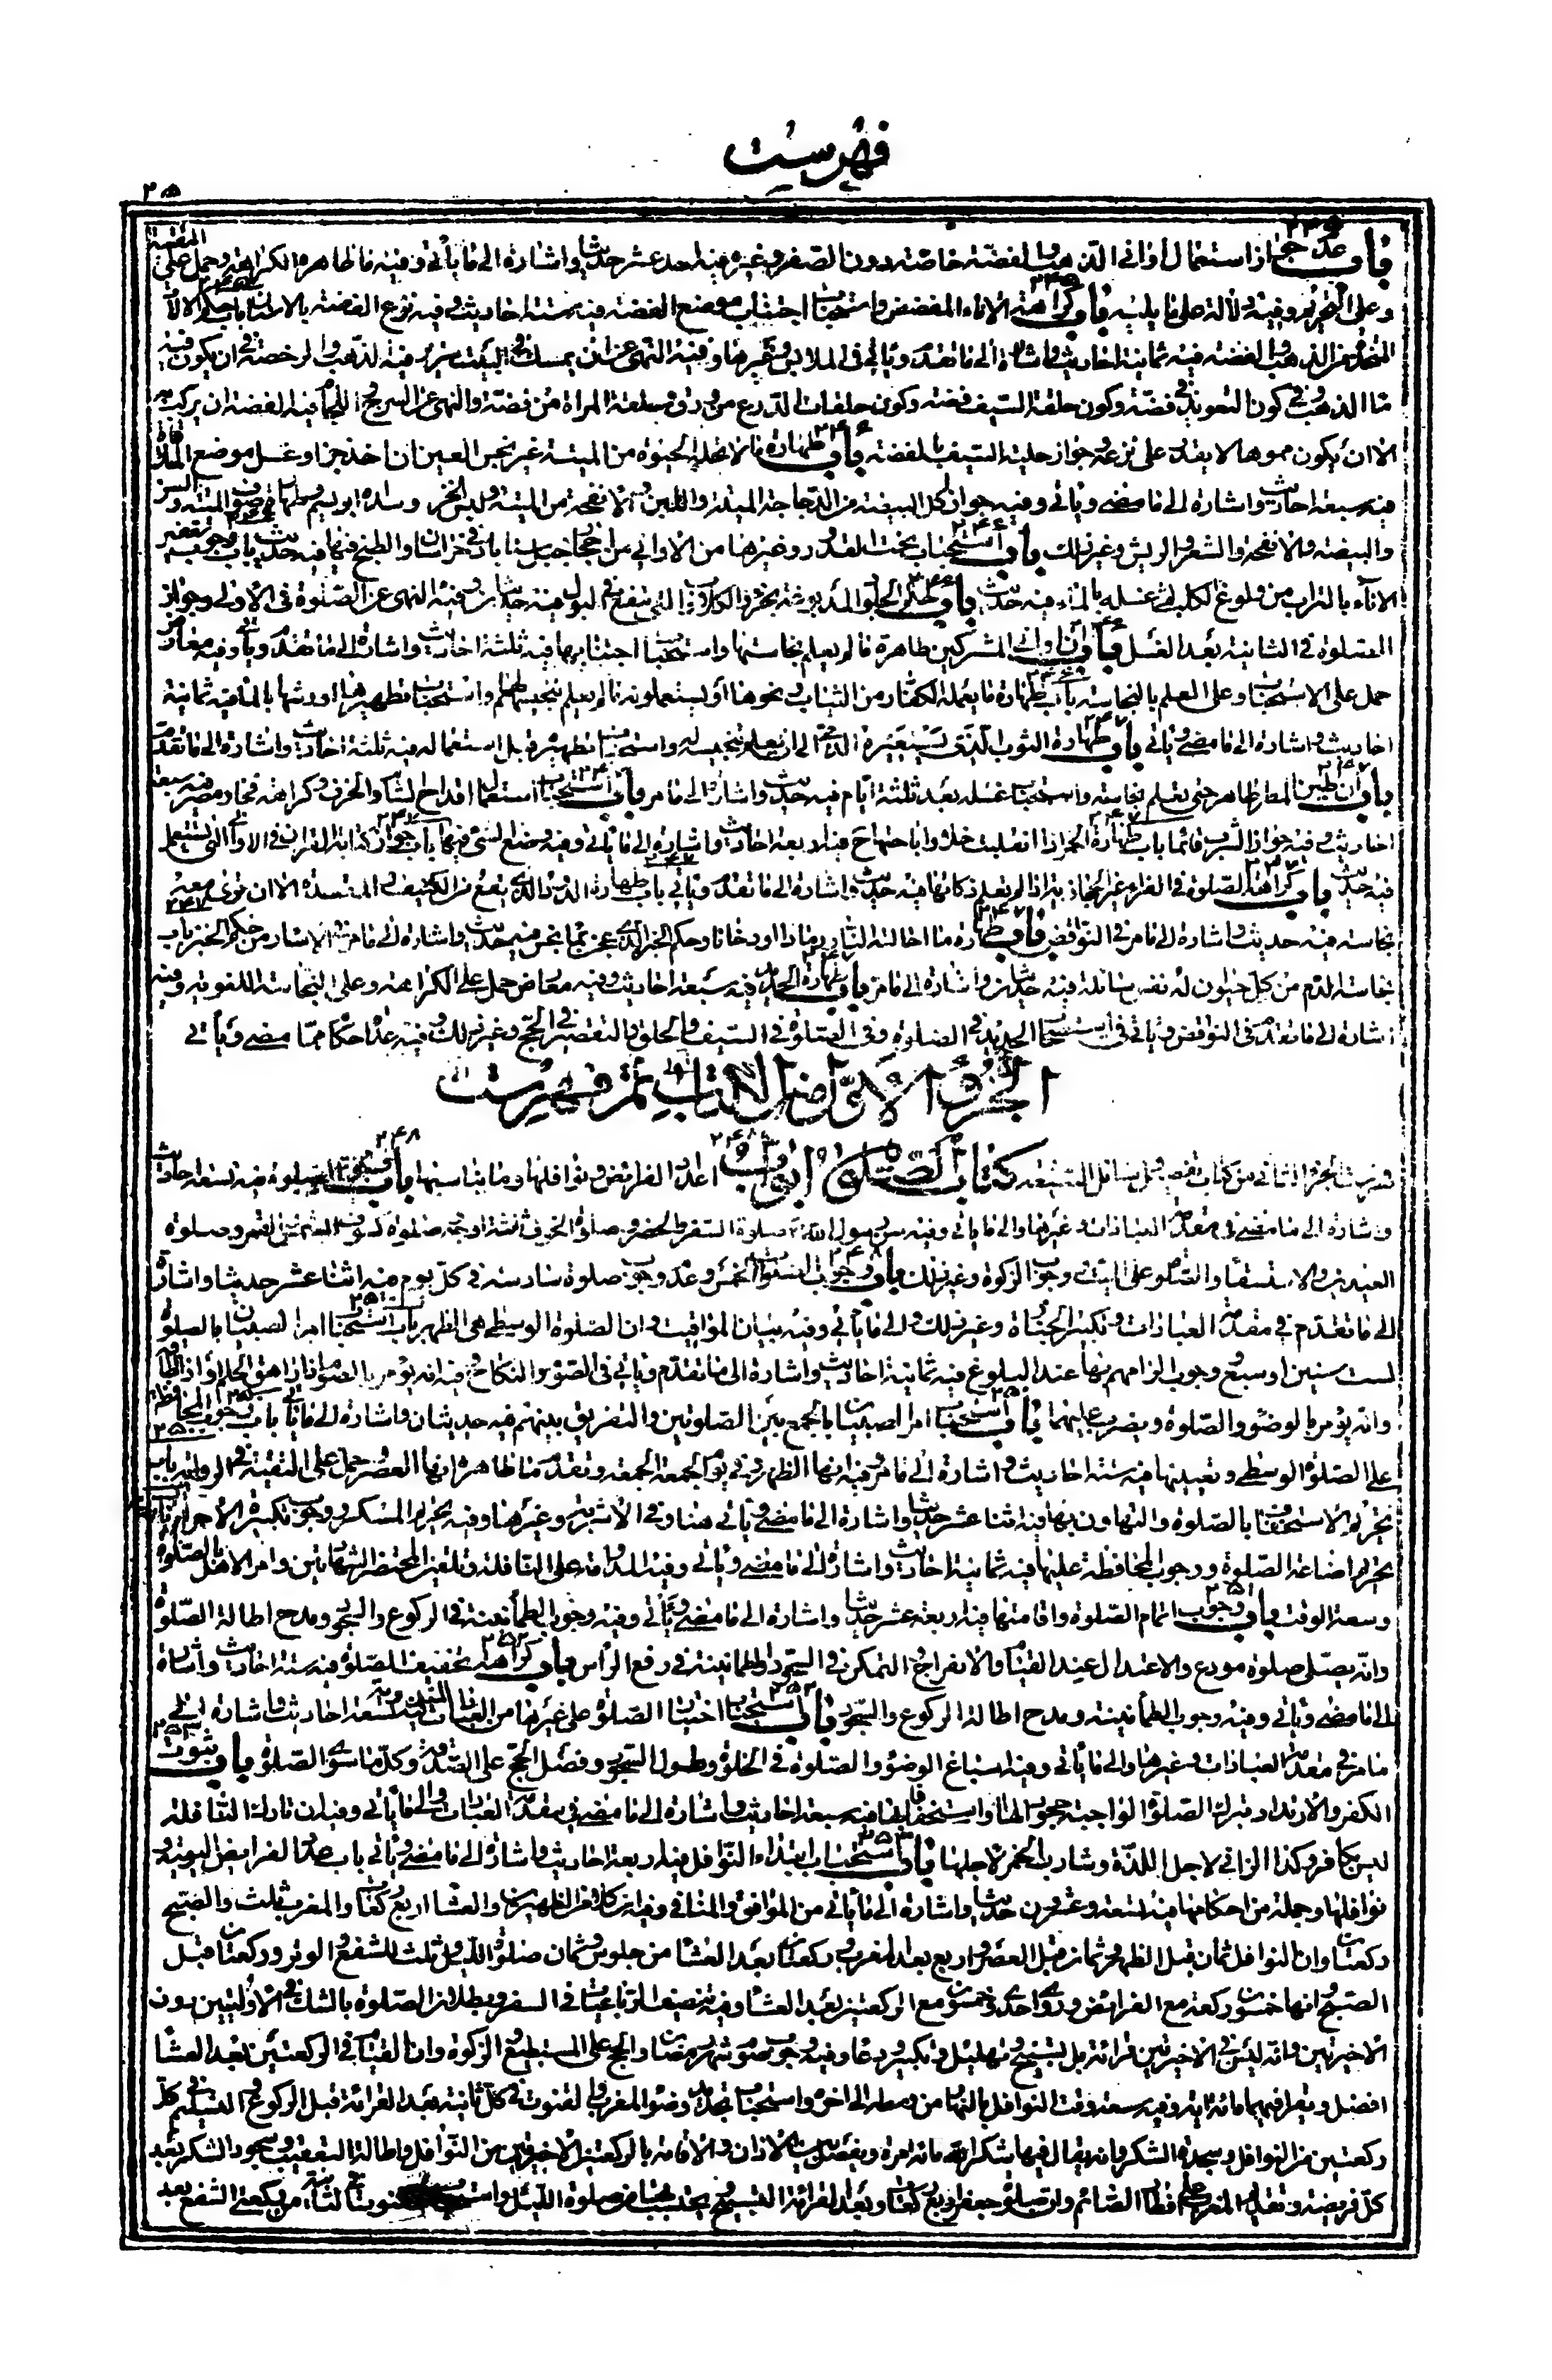 فهرست
٢٥
باب عدم جواز استعمال اواني الذهب والفضة خاصة دون الصفر وغيره فيه احد عشر حديثا واشارة الى ما يأتي وفيه ما ظاهره الكراهة وحمل على التقية
وعلى التحريم وفيه دلالة على ما يليه باب كراهة الاناء المفضض واستحباب اجتناب موضع الفضة فيه ستة احاديث وفيه نزع الفضة بالاسنان باب حكم الآلات
المتخذة من الذهب والفضة فيه ثمانية احاديث واشارة الى ما تقدم ويأتي في الملابس وغيرها وفيه النهي عن ان يمسك في البيت وفيه الذهب والرخصة في ان يكون فيه
ماء الذهب وفي كون التعويذ في فضة وكون حلقة السيف فضة وكون حلقات الدرع من ورق وحلقة المراة من فضة والنهي عن السرج واللجام فيه الفضة ان يركب به
الا ان يكون مموها لا يقدر على نزعه وجواز حلية السيف بالفضة باب طهارة ما لا تحله الحيوة من الميتة غير نجس العين ان اخذ جزا او غسل موضع الملاقاة
فيه سبعة احاديث واشارة الى ما مضى ويأتي وفيه جواز اكل البيضة من الدجاجة الميتة واللبن والانفحة من الميتة
والبيضة والانفحة والشعر والريش وغير ذلك باب استحباب نحت القدور وغيرها من الاواني من احجار جبل سناباد في خراسان والطبخ فيها فيه حديث باب وجوب تعفير
الاناء بالتراب من ولوغ الكلب ثم غسله بالماء فيه حديث باب حكم الجلد المدبوغة بخرء الكلاب التي تنقع في البول فيه حديثان وفيه النهي عن الصلوة في الاولى وجواز
الصلوة في الثانية بعد الغسل باب ان اواني المشركين طاهرة ما لم يعلم نجاستها واستحباب اجتنابها فيه ثلثة احاديث واشارة الى ما تقدم ويأتي وفيه معارض
حمل على الاستحباب وعلى العلم بالنجاسة باب طهارة ما يعمله الكفار من الثياب ونحوها او يستعملونه ما لم يعلم تنجيسهم لها واستحباب تطهيرها او رشها بالماء فيه ثمانية
احاديث واشارة الى ما مضى ويأتي باب طهارة الثوب الذي يستعيره الذمي الى ان يعلم تنجيسه له واستحباب تطهيره قبل استعماله فيه ثلثة احاديث واشارة الى ما تقدم
باب ان طين المطر طاهر حتى تعلم نجاسته واستحباب غسله بعد ثلثة ايام فيه حديث واشارة الى ما مر باب استحباب استعمال اقداح الشام والخزف وكراهة فخار مصر فيه سبعة
احاديث وفيه جواز الشرب قائما باب طهارة الخمر اذا انقلبت خلا واباحتها ح فيه اربعة احاديث واشارة الى ما يأتي وفيه وضع الشيء فيها باب جواز كتابة القران في الاواني التي تستعمل
فيه حديث باب كراهة الصلوة في الفراء غير الحجازية اذا لم تعلم ذكاتها فيه حديث واشارة الى ما تقدم ويأتي باب طهارة الدود الذي يقع من الكنيف والمقعدة الا ان ترى معه
نجاسة فيه حديث واشارة الى ما مر في النواقض باب طهارة ما احالته النار رمادا او دخانا وحكم الخبز الذي عجن بماء نجس فيه حديث واشارة الى ما مر في الاسئار من حكم الخبز باب
نجاسة الدم من كل حيوان له نفس سائلة فيه حديثان واشارة الى ما مر باب طهارة الحديد فيه سبعة احاديث وفيه معارض حمل على الكراهة وعلى النجاسة اللغوية وفيه
اشارة الى ما تقدم في النواقض ويأتي في استصحاب الحديد في الصلوة وفي الصلوة في السيف والحلق والتقصير في الحج وغير ذلك وفيه عدة احكام مما مضى ويأتي
تم فهرست الجزء الاول من الكتاب
فهرست الجزء الثاني من كتاب تفصيل وسائل الشيعة كتاب الصلوة ابواب اعداد الفرائض ونوافلها وما يناسبها باب وجوب الصلوة فيه تسعة احاديث
واشارة الى ما مضى في مقدمة العبادات وغيرها والى ما يأتي وفيه سن رسول الله ص صلوة السفر والحضر وصلوة الخوف ثلثة اوجه وصلوة كسوف الشمس والقمر وصلوة
العيدين والاستسقاء والصلوة على الميت ووجوب الزكوة وغير ذلك باب وجوب الصلوات الخمس وعدم وجوب صلوة سادسة في كل يوم فيه اثنا عشر حديثا واشارة
الى ما تقدم في مقدمة العبادات وتكبير الجنازة وغير ذلك والى ما يأتي وفيه بيان المواقيت وان الصلوة الوسطى هي الظهر باب استحباب امر الصبيان بالصلوة
لست سنين او سبع ووجوب الزامهم بها عند البلوغ فيه ثمانية احاديث واشارة الى ما تقدم ويأتي في الصوم والنكاح وفيه انه يؤمر بالصوم اذا راهق الحلم او اذا اطاق
وانه يؤمر بالوضوء والصلوة ويضرب عليهما باب استحباب امر الصبيان بالجمع بين الصلوتين والتفريق بينهم فيه حديثان واشارة الى ما يأتي باب وجوب المحافظة
على الصلوة الوسطى وتعيينها فيه ستة احاديث واشارة الى ما مر وفيه انها الظهر وفي يوم الجمعة الجمعة وتقدم ما ظاهره انها العصر حمل على التقية في الرواية باب
تحريم الاستخفاف بالصلوة والتهاون بها فيه اثنا عشر حديثا واشارة الى ما مضى ويأتي هنا وفي الاشربة وغيرها وفيه تحريم المسكر ووجوب تكبيرة الاحرام باب
تحريم اضاعة الصلوة ووجوب المحافظة عليها فيه ثمانية احاديث واشارة الى ما مضى ويأتي وفيه المداومة على النافلة وتلقين المحتضر الشهادتين وامر الاهل بالصلوة
وسعة الوقت باب وجوب اتمام الصلوة واقامتها فيه اربعة عشر حديثا واشارة الى ما مضى ويأتي وفيه وجوب الطمأنينة في الركوع والسجود ومدح اطالة الصلوة
وانه يصلي صلوة مودع والاعتدال عند القيام والانفراج والتمكن في السجود والطمأنينة في رفع الرأس باب كراهة تخفيف الصلوة فيه ستة احاديث واشارة
الى ما مضى ويأتي وفيه وجوب الطمأنينة ومدح اطالة الركوع والسجود باب استحباب اختيار الصلوة على غيرها من العبادات المندوبة فيه تسعة احاديث واشارة الى
ما مر في مقدمة العبادات وغيرها والى ما يأتي وفيه اسباغ الوضوء والصلوة في الخلوة وطول السجود وفضل الحج على الصدقة وكل ما سوى الصلوة باب ثبوت
الكفر والارتداد بترك الصلوة الواجبة جحودا لها او استخفافا بها فيه سبعة احاديث واشارة الى ما مضى في مقدمة العبادات والى ما يأتي وفيه ان تارك النافلة
ليس بكافر وكذا الزاني لاجل اللذة وشارب الخمر لاجلها باب استحباب ابتداء النوافل فيه اربعة احاديث واشارة الى ما مضى ويأتي باب عدد الفرائض اليومية و
نوافلها وجملة من احكامها فيه تسعة وعشرون حديثا واشارة الى ما يأتي من الموافق والمنافي وفيه ان كلا من الظهرين والعشاء اربع ركعات والمغرب ثلث والصبح
ركعتان وان النوافل ثمان قبل الظهر وثمان قبل العصر واربع بعد المغرب وركعتان بعد العشاء من جلوس وثمان صلوة الليل وثلث للشفع والوتر وركعتان قبل
الصبح وانها خمسون ركعة مع الفرائض وروي واحدى وخمسون مع الركعتين بعد العشاء وفيه تنصيف الرباعيات في السفر وبطلان الصلوة بالشك في الاوليين دون
الاخيرتين وانه ليس في الاخيرتين قرائة بل تسبيح وتهليل وتكبير ودعاء وفيه وجوب صوم شهر رمضان والحج على المستطيع والزكوة وان القيام في الركعتين بعد العشاء
افضل ويقرأ فيهما مائة اية وفيه سعة وقت النوافل بالنهار من وسطه الى اخره واستحباب تجديد وضوء المغرب والقنوت في كل ثانية بعد القرائة قبل الركوع والتسليم في كل
ركعتين من النوافل وسجدة الشكر وانه يقال فيها شكرا لله مائة مرة ويفصل بين الاذان والاقامة بالركعتين الاخيرتين من النوافل واطالة التعقيب وسجود الشكر بعد
كل فريضة وتقديم المغرب على افطار الصائم وان صلوة جعفر اربع ركعات وبعد القرائة التسبيح صلوة الليل من ركعتي الشفع بعد